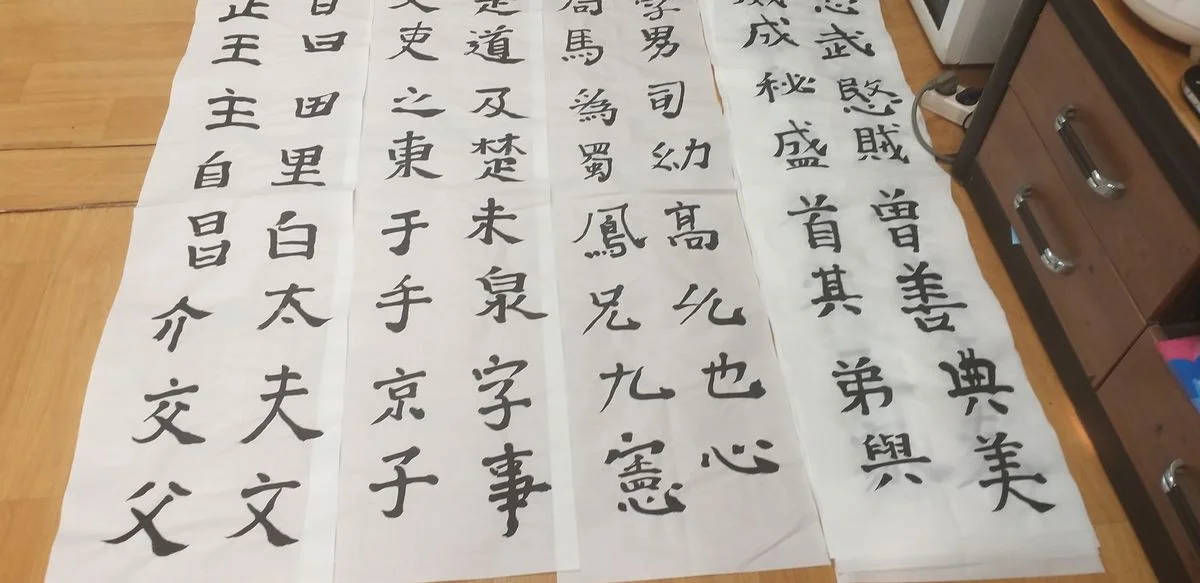 武愍賊曾善典美
成秘盛首其弟與
男司幼高也心
馬為蜀鳳兄九憲
道及楚未泉字事
吏之東于手京子
曰田里白太夫文
正王主自昌介交父